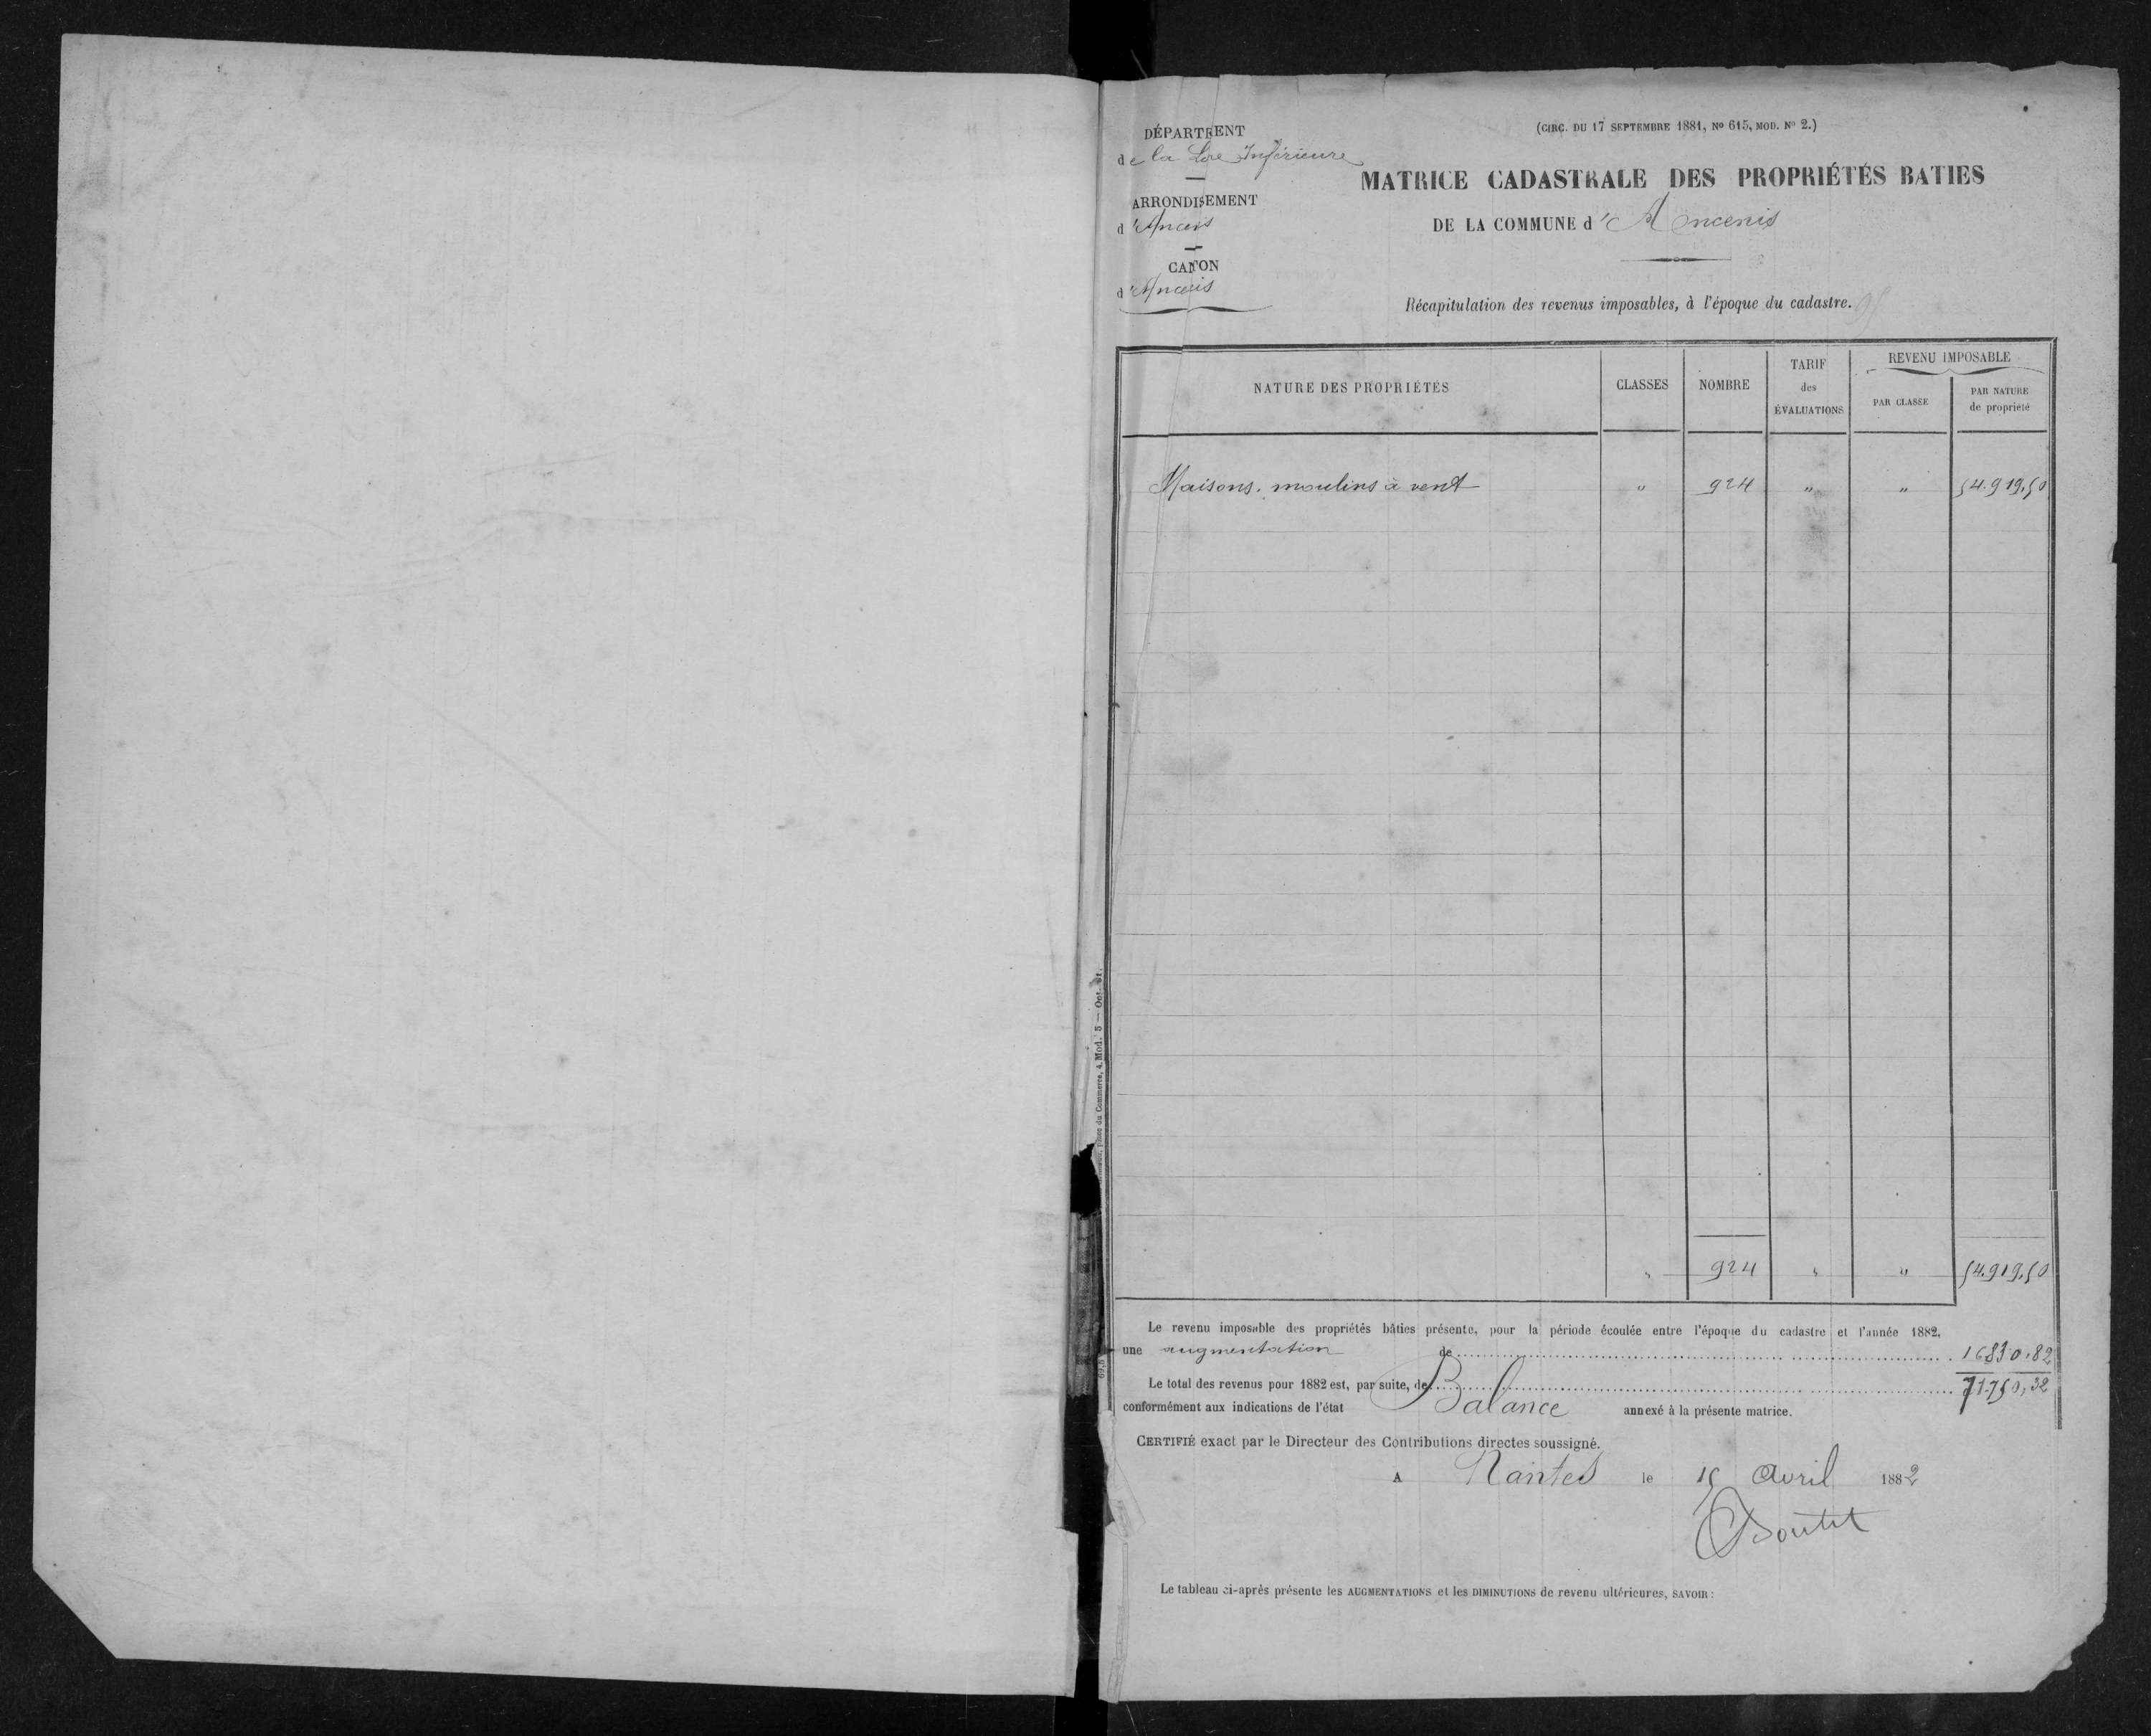 (CIRC. DU 17 SEPTEMBRE 1881, No 615, MOD. No 2.)
DÉPARTEMENT
de la Loire Inférieure
ARRONDISSEMENT
d'Ancenis
CANTON
d'Ancenis
MATRICE CADASTRALE DES PROPRIÉTÉS BATIES
DE LA COMMUNE d'Ancenis
Récapitulation des revenus imposables, à l'époque du cadastre.
NATURE DES PROPRIÉTÉS CLASSES NOMBRE TARIF des ÉVALUATIONS REVENU IMPOSABLE PAR CLASSE PAR NATURE de propriété
Maisons. moulins à vent " 924 " " 54.919,50
" 924 " " 54.919,50
Le revenu imposable des propriétés bâties présente, pour la période écoulée entre l'époque du cadastre et l'année 1882,
une augmentation de 16830,82
Le total des revenus pour 1882 est, par suite, de 71.750,32
conformément aux indications de l'état Balance annexé à la présente matrice.
CERTIFIÉ exact par le Directeur des Contributions directes soussigné.
A Nantes le 15 Avril 1882
Boutet
Le tableau ci-après présente les AUGMENTATIONS et les DIMINUTIONS de revenu ultérieures, SAVOIR :
place du Commerce, 4. Mod. 5 — Oct.